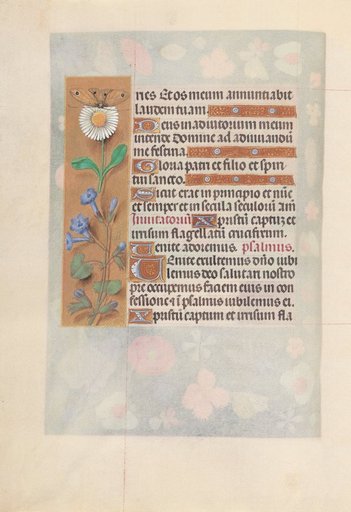 ries Et os meum annuntiabit
laudem tuam.
Deus in adiutorium meum
intende Domine ad adiuuandū
me festina.
Gloria patri et filio et spiri
tui sancto.
Sicut erat in principio et nūc
et semper et in secula seculorū am̄
Inuitatoriū Xpristū captū et
irrisum flagellatū crucifixum.
Uenite adoremus. psalmus.
Uenite exultemus dn̄o iubi
lemus deo salutari nostro
pre occupemus faciem eius in con
fessione et ī psalmis iubilemus ei.
Xpristū captum et irrisum fla